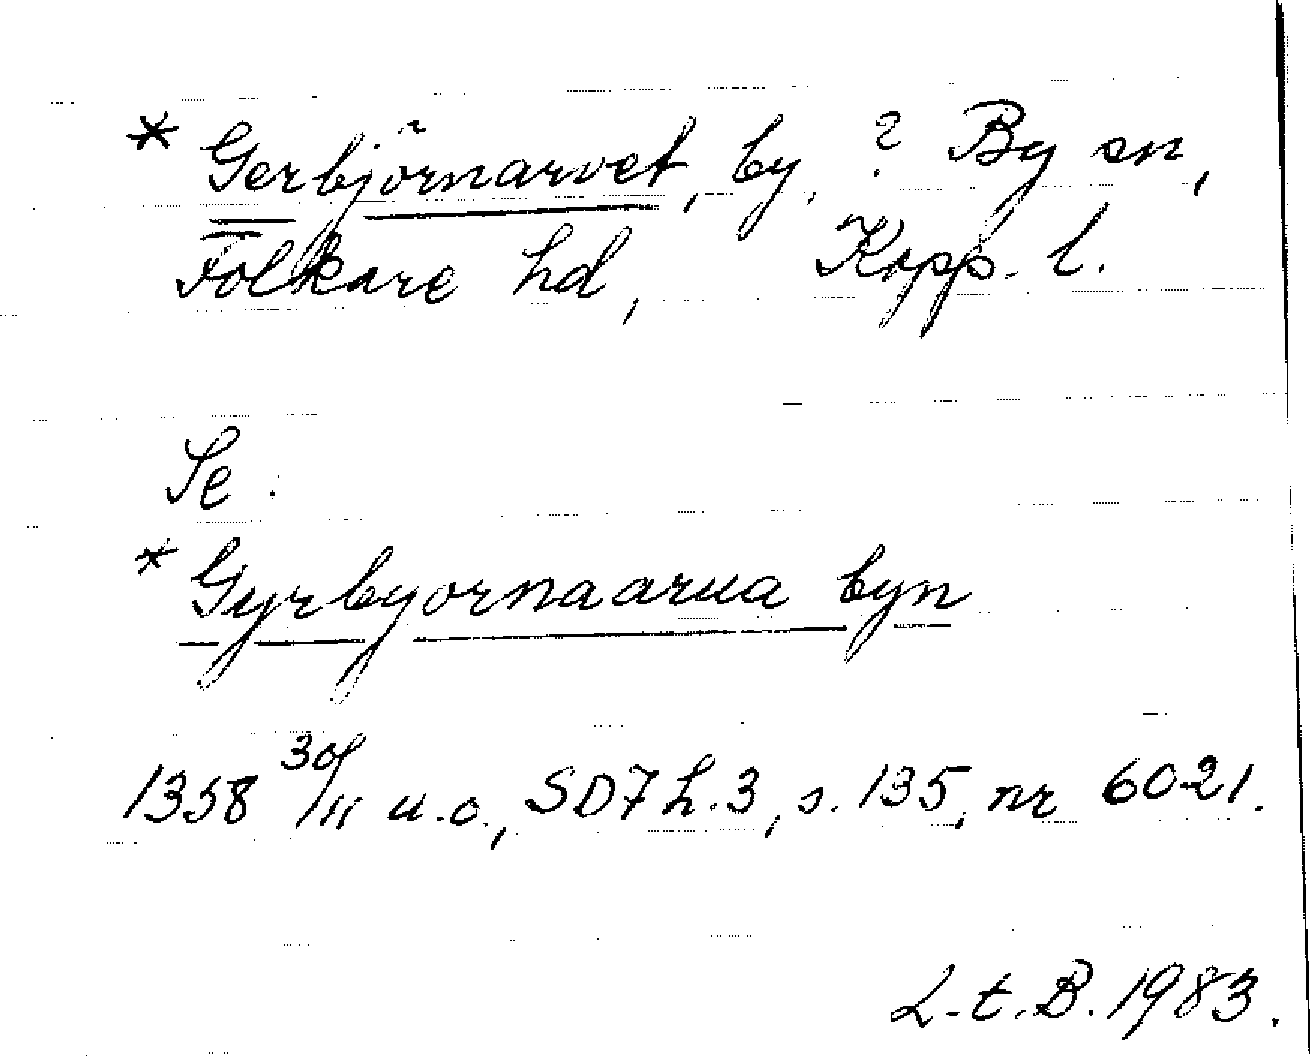 * Gerbjörnarvet, by, ? By sn,
Folkare hd, Kopp. l.
Se:
* Gyrbyornaarua byn
1358 30/III u.o., SD7 h.3, s. 135, nr 6021.
L.t.B. 1983.